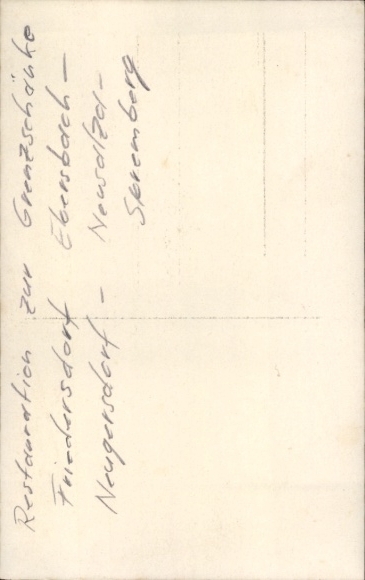 Restauration zur Grenzschänke
Friedersdorf Ebersbach –
Neugersdorf – Neusalza-
Spremberg